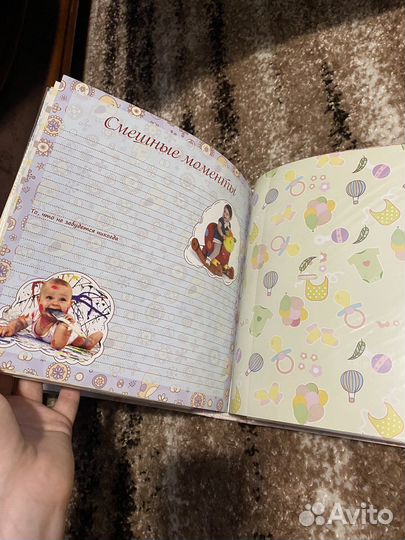 Смешные моменты
То, что не забудется никогда
Avito